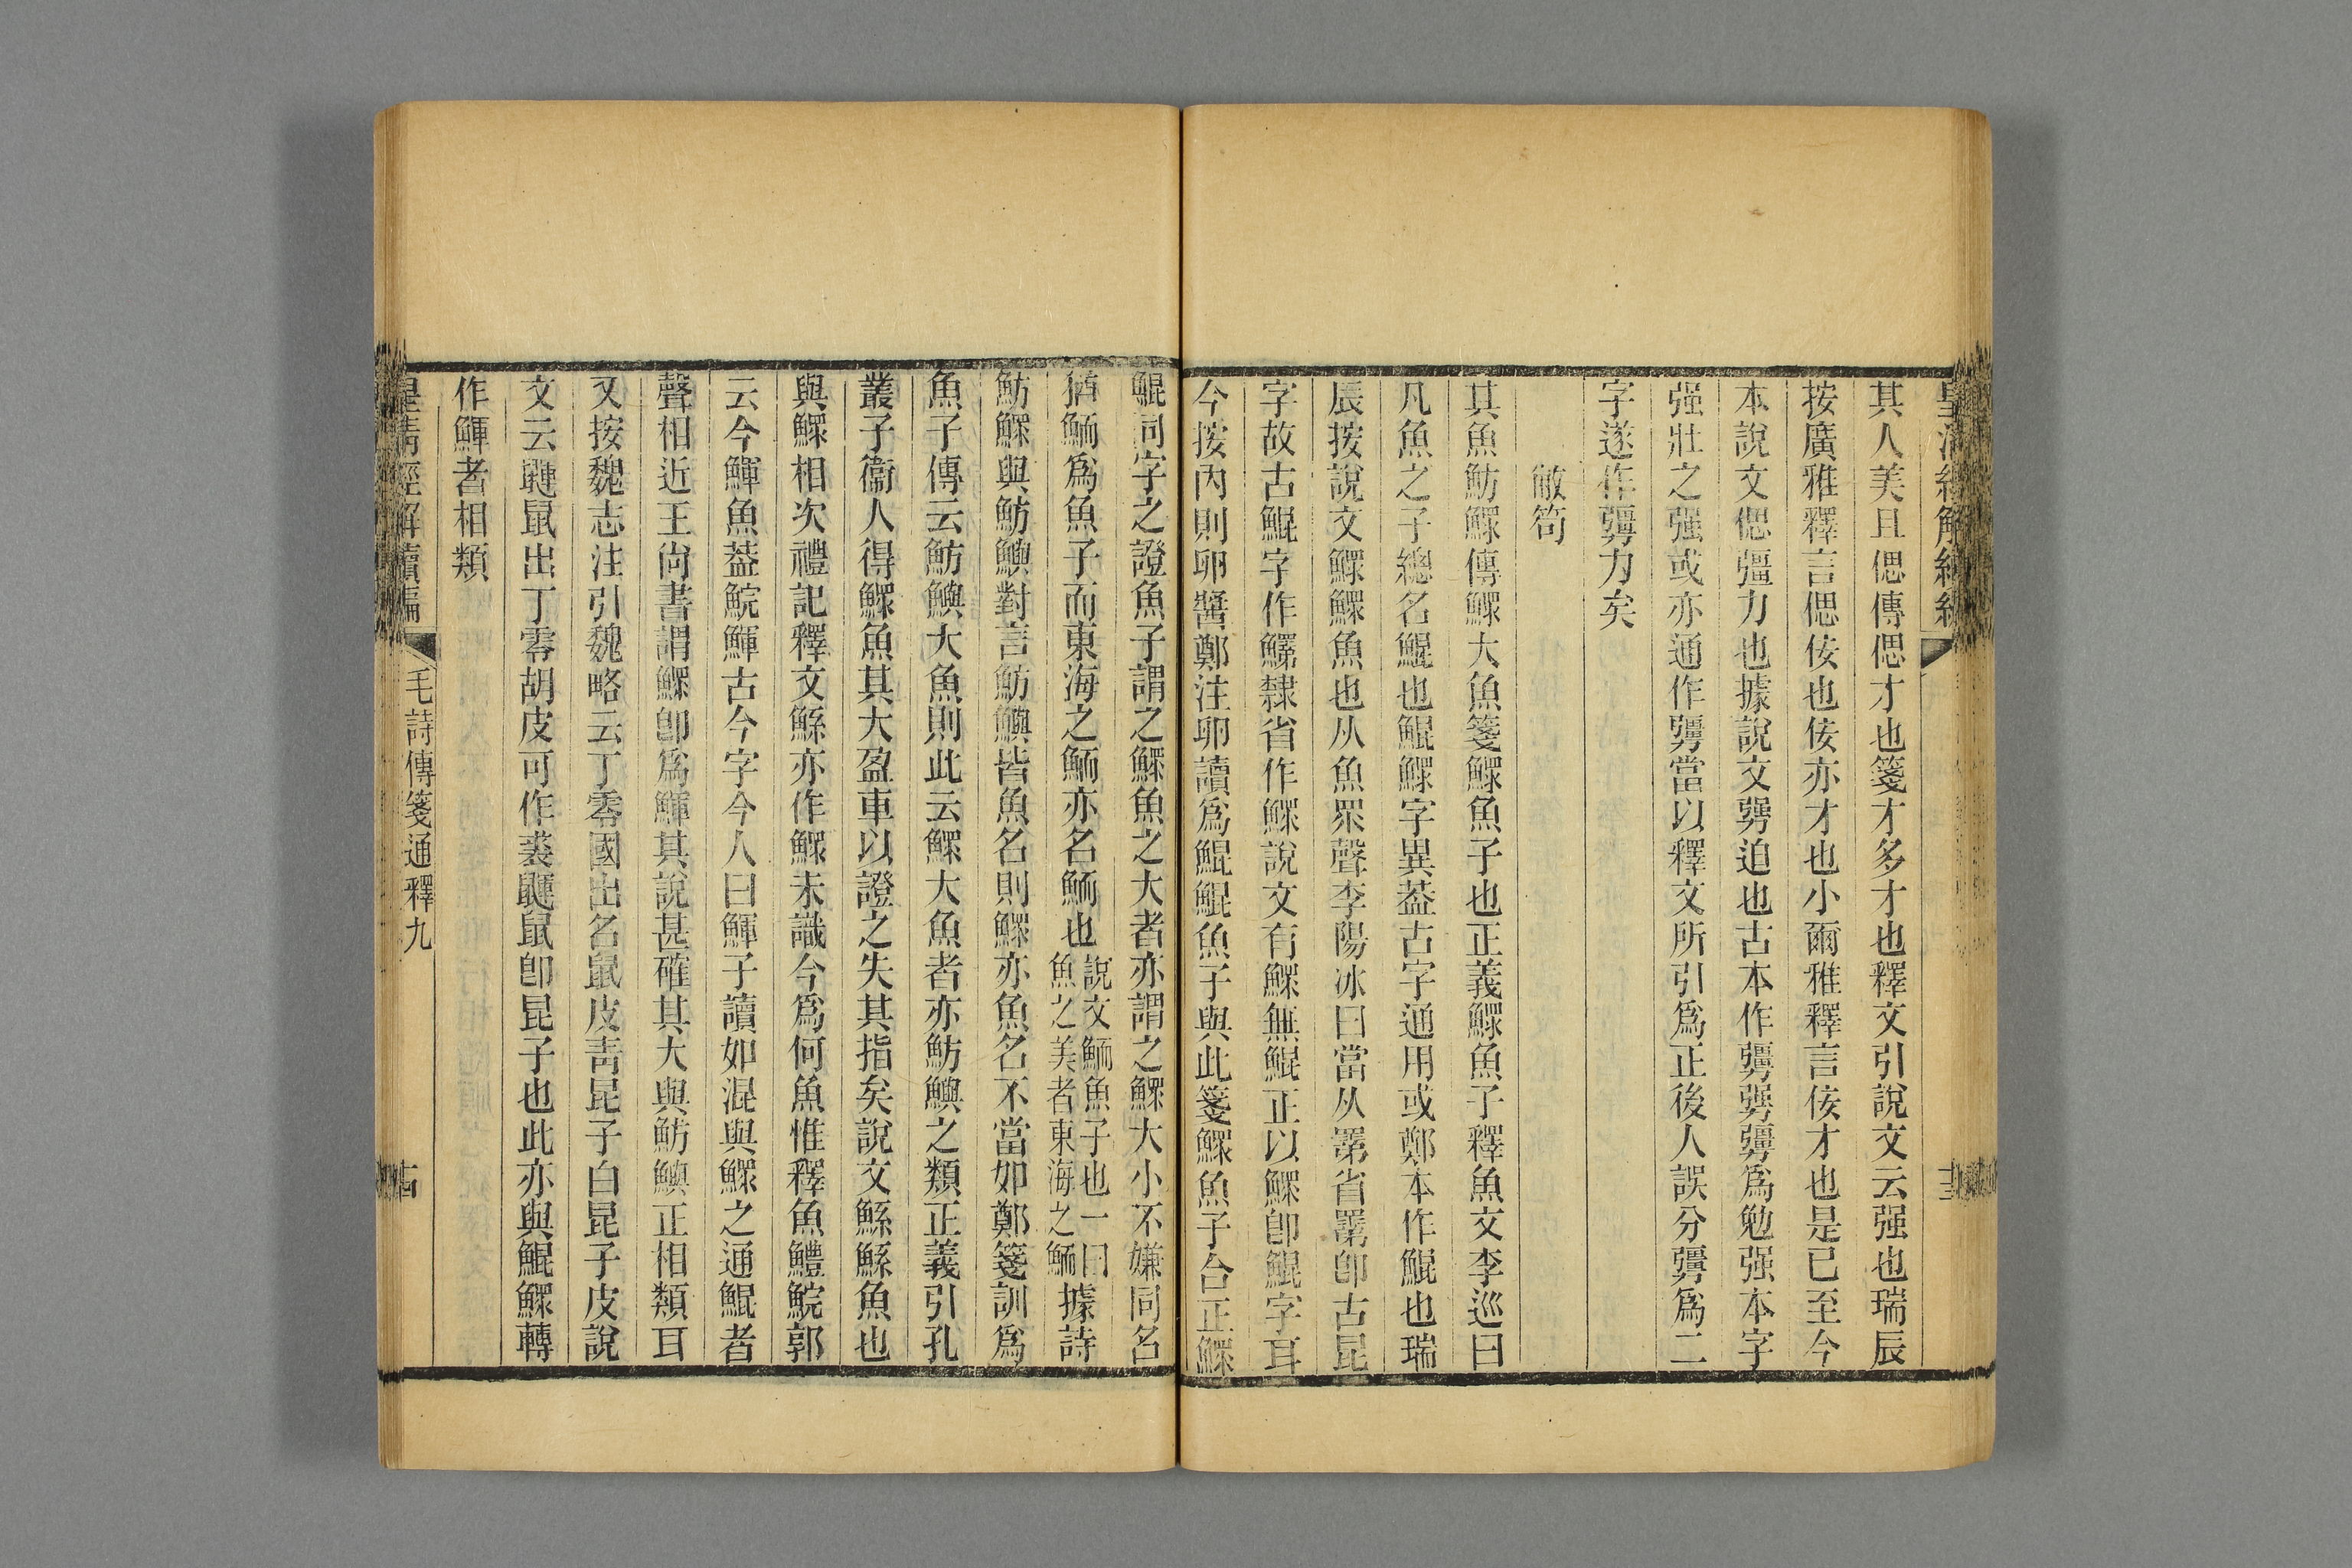 皇清經解續編
其人美且偲傳偲才也箋才多才也釋文引說文云强也瑞辰
按廣雅釋言偲佞也佞亦才也小爾雅釋言佞才也是已至今
本說文偲彊力也據說文勥迫也古本作勥勥勥爲勉强本字
强壯之强或亦通作勥當以釋文所引爲正後人誤分勥爲二
字遂作彊力矣
敝笱
其魚魴鱞傳鱞大魚箋鱞魚子也正義鱞魚子釋魚文李巡曰
凡魚之子總名鯤也鯤鱞字異葢古字通用或鄭本作鯤也瑞
辰按說文鱞鱞魚也从魚眔聲李陽冰曰當从睘省睘卽古昆
字故古鯤字作鱞隸省作鰥說文有鰥無鯤正以鰥卽鯤字耳
今按內則卵醬鄭注卵讀爲鯤鯤魚子與此箋鰥魚子合正鰥
鯤同字之證魚子謂之鰥魚之大者亦謂之鰥大小不嫌同名
猶鮞爲魚子而東海之鮞亦名鮞也說文鮞魚子也一曰魚之美者東海之鮞據詩
魴鰥與魴鱮對言魴鱮皆魚名則鰥亦魚名不當如鄭箋訓爲
魚子傳云魴鱮大魚則此云鰥大魚者亦魴鱮之類正義引孔
叢子衞人得鰥魚其大盈車以證之失其指矣說文鯀鯀魚也
與鰥相次禮記釋文鯀亦作鰥未識今爲何魚惟釋魚鱧鯇郭
云今鯶魚葢鯇鯶古今字今人曰鯶子讀如混與鰥之通鯤者
聲相近王尙書謂鰥卽爲鯶其說甚確其大與魴鱮正相類耳
又按魏志注引魏略云丁零國出名鼠皮靑昆子白昆子皮說
文云鼲鼠出丁零胡皮可作裘鼲鼠卽昆子也此亦與鯤鰥轉
作鯶者相類
皇淸經解續編
毛詩傳箋通釋九